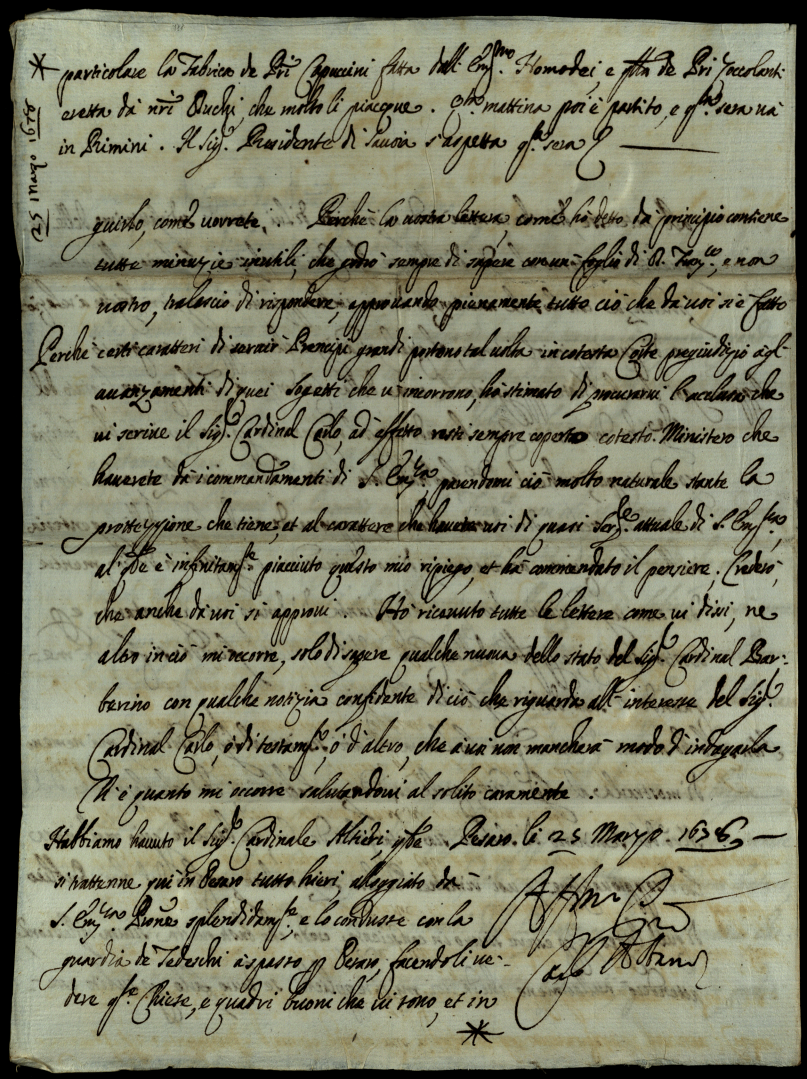 * particolare la Fabrica de Pri Capuccini fatta dall' Emo. Homodei, e qlla de Pri Zoccolanti
eretta da nri Duchi, che molto li piacque. Qta mattina poi è partito, e qta sera va
in Rimini. Il Sigr. Presidente di Savoia s'aspetta qta sera
25 Marzo 1676
guirlo, come vorrete. Perche la vostra lettera, come hò detto da principio contiene
tutte minuzie inutili, che godrò sempre di sapere con un foglio di
e non
vostro, tralascio di rispondere, approvando pienamente tutto ciò che da voi si è fatto
Perche certi caratteri di servir Prencipi grandi portono tal volta in cotesta Corte pregiudizio agl'
avanzamenti di quei Sogetti che v'incorrono, hò stimato di procurarvi l'acclusa che
vi scrive il Sigr. Cardinal Carlo, ad effetto resti sempre coperto cotesto Ministero che
haverete da i commandamenti di S. Emza. parendomi ciò molto naturale stante la
prottezzione che tiene, et al carattere che havete voi di quasi Serre attuale di S. Emza,
al qle è infinitamte piaciuto questo mio ripiego, et hà commendato il pensiere. Crederò,
che anche da voi si approvi. Hò ricevuto tutte le lettere come vi dissi, ne
altro in ciò mi occorre, solo di sapere qualche nuova dello stato del Sigr. Cardinal Bar-
berino con qualche notizia confidente di ciò che riguarda all' interesse del Sigr.
Cardinal Carlo, ò di testamto, ò d'altro, che à voi non mancherà modo d'indagarla
Ch'è quanto mi occorre salutandovi al solito caramente.
Habbiamo havuto il Sigr. Cardinale Altieri, qle Pesaro li 25 Marzo 1676
si trattenne qui in Pesaro tutto hieri, alloggiato da
S. Emza Prone splendidamte, e lo condusse con la
guardia de Tedeschi à spasso p Pesaro, facendoli ve-
dere qte Chiese, e quadri buoni che vi sono, et in
*
Affmo
Carlo Albani